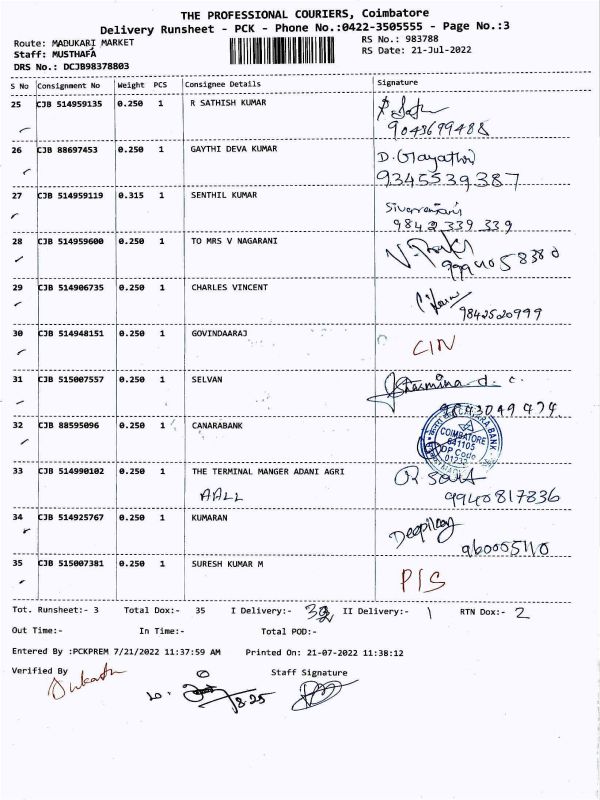 THE PROFESSIONAL COURIERS, Coimbatore
Delivery Runsheet - PCK - Phone No.:0422-3505555 - Page No.:3
Route: MADUKARI MARKET
RS No.: 983788
Staff: MUSTHAFA
RS Date: 21-Jul-2022
DRS No.: DCJB98378803
S No Consignment No Weight PCS Consignee Details Signature
25 CJB 514959135 0.250 1 R SATHISH KUMAR
9043699488
26 CJB 88697453 0.250 1 GAYTHI DEVA KUMAR D. Gayathri
9345539387
27 CJB 514959119 0.315 1 SENTHIL KUMAR
9842 339 339
28 CJB 514959600 0.250 1 TO MRS V NAGARANI
9994058380
29 CJB 514906735 0.250 1 CHARLES VINCENT
9842520999
30 CJB 514948151 0.250 1 GOVINDAARAJ
CIN
31 CJB 515007557 0.250 1 SELVAN
9843049474
32 CJB 88595096 0.250 1 CANARABANK
CANARA BANK
COIMBATORE
641105
DP Code
33 CJB 514990102 0.250 1 THE TERMINAL MANGER ADANI AGRI
AALL
9940817836
34 CJB 514925767 0.250 1 KUMARAN
960005110
35 CJB 515007381 0.250 1 SURESH KUMAR M
P/S
Tot. Runsheet:- 3 Total Dox:- 35 I Delivery:- 32 II Delivery:- 1 RTN Dox:- 2
Out Time:- In Time:- Total POD:-
Entered By :PCKPREM 7/21/2022 11:37:59 AM Printed On: 21-07-2022 11:38:12
Verified By Staff Signature